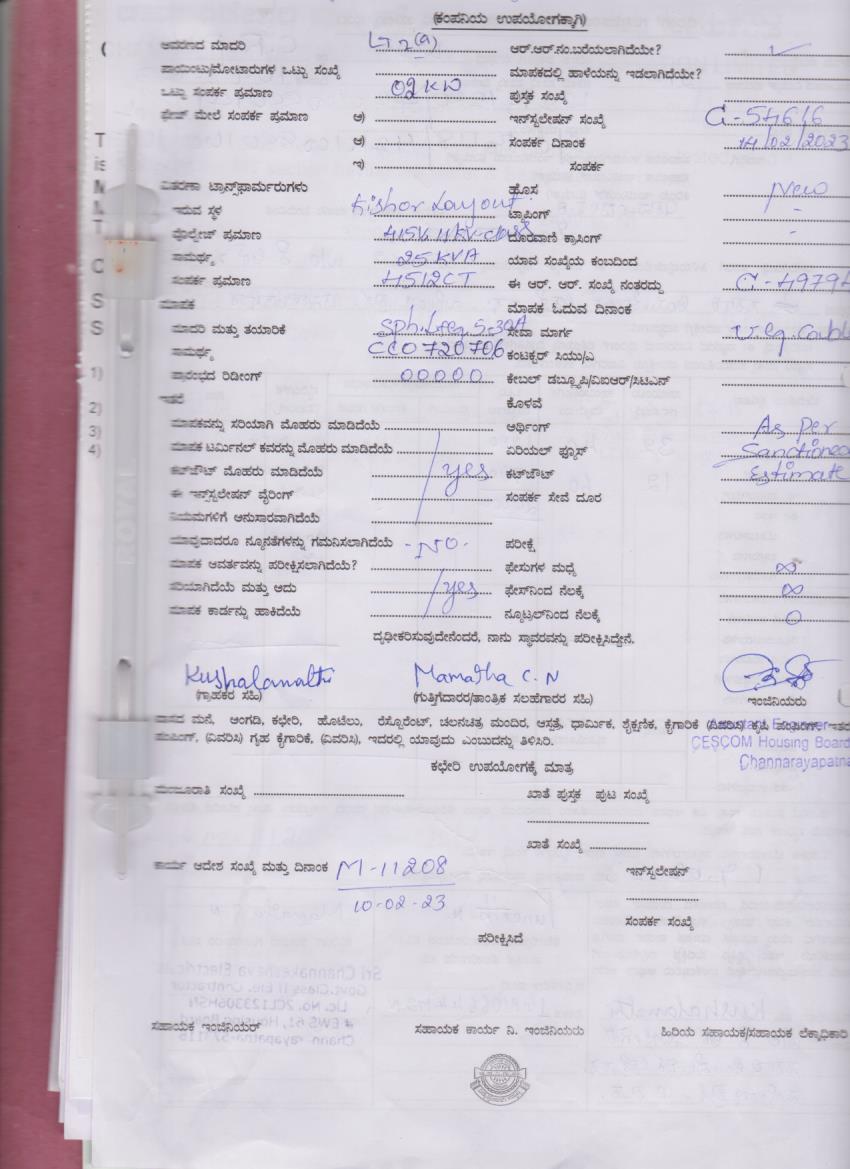 (ಕಂಪನಿಯ ಉಪಯೋಗಕ್ಕಾಗಿ)
ಆವರಣದ ಮಾದರಿ LT 2(a) ಆರ್.ಆರ್.ನಂ.ಬರೆಯಲಾಗಿದೆಯೇ?
ಪಾಯಿಂಟು/ಮೋಟಾರುಗಳ ಒಟ್ಟು ಸಂಖ್ಯೆ ಮಾಪಕದಲ್ಲಿ ಹಾಳೆಯನ್ನು ಇಡಲಾಗಿದೆಯೇ?
ಒಟ್ಟು ಸಂಪರ್ಕ ಪ್ರಮಾಣ 02 KW ಪುಸ್ತಕ ಸಂಖ್ಯೆ
ಫೇಜ್ ಮೇಲೆ ಸಂಪರ್ಕ ಪ್ರಮಾಣ ಅ) ಇನ್‌ಸ್ಟಲೇಷನ್ ಸಂಖ್ಯೆ G-54616
ಆ) ಸಂಪರ್ಕ ದಿನಾಂಕ 14/02/2023
ಇ) ಸಂಪರ್ಕ
ವಿತರಣಾ ಟ್ರಾನ್ಸ್‌ಫಾರ್ಮರುಗಳು ಹೊಸ New
ಇರುವ ಸ್ಥಳ Kishor Layout ಟ್ಯಾಪಿಂಗ್ -
ವೊಲ್ಟೇಜ್ ಪ್ರಮಾಣ 415V, 11 KV-class ದೂರವಾಣಿ ಕ್ರಾಸಿಂಗ್ -
ಸಾಮರ್ಥ್ಯ 25 KVA ಯಾವ ಸಂಖ್ಯೆಯ ಕಂಬದಿಂದ
ಸಂಪರ್ಕ ಪ್ರಮಾಣ 4512CT ಈ ಆರ್. ಆರ್. ಸಂಖ್ಯೆ ನಂತರದ್ದು G-4979
ಮಾಪಕ ಮಾಪಕ ಓದುವ ದಿನಾಂಕ
ಮಾದರಿ ಮತ್ತು ತಯಾರಿಕೆ 5-30A ಸೇವಾ ಮಾರ್ಗ
ಸಾಮರ್ಥ್ಯ CCO 720706 ಕಂಟಕ್ಟರ್ ಸಿಯು/ಎ
ಪ್ರಾರಂಭದ ರಿಡೀಂಗ್ 00000 ಕೇಬಲ್ ಡಬ್ಲ್ಯೂಪಿ/ವಿಐಆರ್/ಸಿಟಿಎಸ್
ಇತರೆ ಕೊಳವೆ
ಮಾಪಕವನ್ನು ಸರಿಯಾಗಿ ಮೊಹರು ಮಾಡಿದೆಯೆ ಆರ್ಥಿಂಗ್ As per
ಮಾಪಕ ಟರ್ಮಿನಲ್ ಕವರನ್ನು ಮೊಹರು ಮಾಡಿದೆಯೆ ಏರಿಯಲ್ ಫ್ಯೂಸ್ Sanctioned
ಕಟ್‌ಔಟ್ ಮೊಹರು ಮಾಡಿದೆಯೆ yes ಕಟ್‌ಔಟ್ Estimate
ಈ ಇನ್‌ಸ್ಟಲೇಷನ್ ವೈರಿಂಗ್ ಸಂಪರ್ಕ ಸೇವೆ ದೂರ
ನಿಯಮಗಳಿಗೆ ಅನುಸಾರವಾಗಿದೆಯೆ
ಯಾವುದಾದರೂ ನ್ಯೂನತೆಗಳನ್ನು ಗಮನಿಸಲಾಗಿದೆಯೆ - NO - ಪರೀಕ್ಷೆ
ಮಾಪಕ ಆವರ್ತವನ್ನು ಪರೀಕ್ಷಿಸಲಾಗಿದೆಯೆ? ಫೇಸುಗಳ ಮಧ್ಯೆ ∞
ಸರಿಯಾಗಿದೆಯೆ ಮತ್ತು ಆದು yes ಫೇಸ್‌ನಿಂದ ನೆಲಕ್ಕೆ ∞
ಮಾಪಕ ಕಾರ್ಡನ್ನು ಹಾಕಿದೆಯೆ ನ್ಯೂಟ್ರಲ್‌ನಿಂದ ನೆಲಕ್ಕೆ 0
ದೃಢೀಕರಿಸುವುದೇನೆಂದರೆ, ನಾನು ಸ್ಥಾವರವನ್ನು ಪರೀಕ್ಷಿಸಿದ್ದೇನೆ.
Kushalamathi Mamatha C.N
(ಗ್ರಾಹಕರ ಸಹಿ) (ಗುತ್ತಿಗೆದಾರರ/ತಾಂತ್ರಿಕ ಸಲಹೆಗಾರರ ಸಹಿ) ಇಂಜಿನಿಯರು
ವಾಸದ ಮನೆ, ಅಂಗಡಿ, ಕಛೇರಿ, ಹೊಟೆಲು, ರೆಸ್ಟೋರೆಂಟ್, ಚಲನಚಿತ್ರ ಮಂದಿರ, ಆಸ್ಪತ್ರೆ, ಧಾರ್ಮಿಕ, ಶೈಕ್ಷಣಿಕ, ಕೈಗಾರಿಕೆ (ವಿವರಿಸಿ) ಕೃಷಿ ಪಂಪಿಂಗ್, ಇತರ
ಪಂಪಿಂಗ್, (ವಿವರಿಸಿ) ಗೃಹ ಕೈಗಾರಿಕೆ, (ವಿವರಿಸಿ), ಇದರಲ್ಲಿ ಯಾವುದು ಎಂಬುದನ್ನು ತಿಳಿಸಿರಿ.
Assistant Engineer
CESCOM Housing Board
Channarayapatna
ಕಛೇರಿ ಉಪಯೋಗಕ್ಕೆ ಮಾತ್ರ
ಮಂಜೂರಾತಿ ಸಂಖ್ಯೆ ಖಾತೆ ಪುಸ್ತಕ ಪುಟ ಸಂಖ್ಯೆ
ಖಾತೆ ಸಂಖ್ಯೆ
ಕಾರ್ಯ ಆದೇಶ ಸಂಖ್ಯೆ ಮತ್ತು ದಿನಾಂಕ M-11208 ಇನ್‌ಸ್ಟಲೇಷನ್
10-02-23
ಸಂಪರ್ಕ ಸಂಖ್ಯೆ
ಪರೀಕ್ಷಿಸಿದೆ
ಸಹಾಯಕ ಇಂಜಿನಿಯರ್ ಸಹಾಯಕ ಕಾರ್ಯ ನಿ. ಇಂಜಿನಿಯರು ಹಿರಿಯ ಸಹಾಯಕ/ಸಹಾಯಕ ಲೆಕ್ಕಾಧಿಕಾರಿ